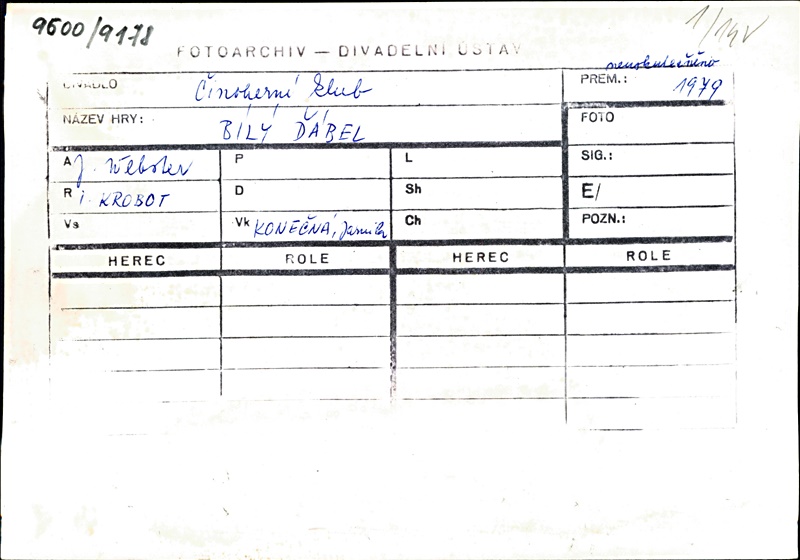 9600/9178
1/14V
FOTOARCHIV — DIVADELNÍ ÚSTAV
neuskutečněno
DIVADLO Činoherní klub PREM.: 1979
NÁZEV HRY: BÍLÝ ĎÁBEL FOTO
A J. Webster P L SIG.:
R i. KROBOT D Sh E/
Vs Vk KONEČNÁ, Jarmila Ch POZN.:
HEREC ROLE HEREC ROLE